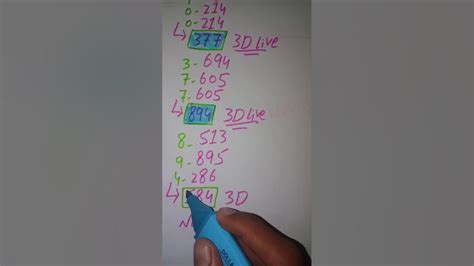 0-214
0-214
377 3D Live
3-694
7-605
7-605
894 3D Live
8-513
9-895
4-286
84 3D